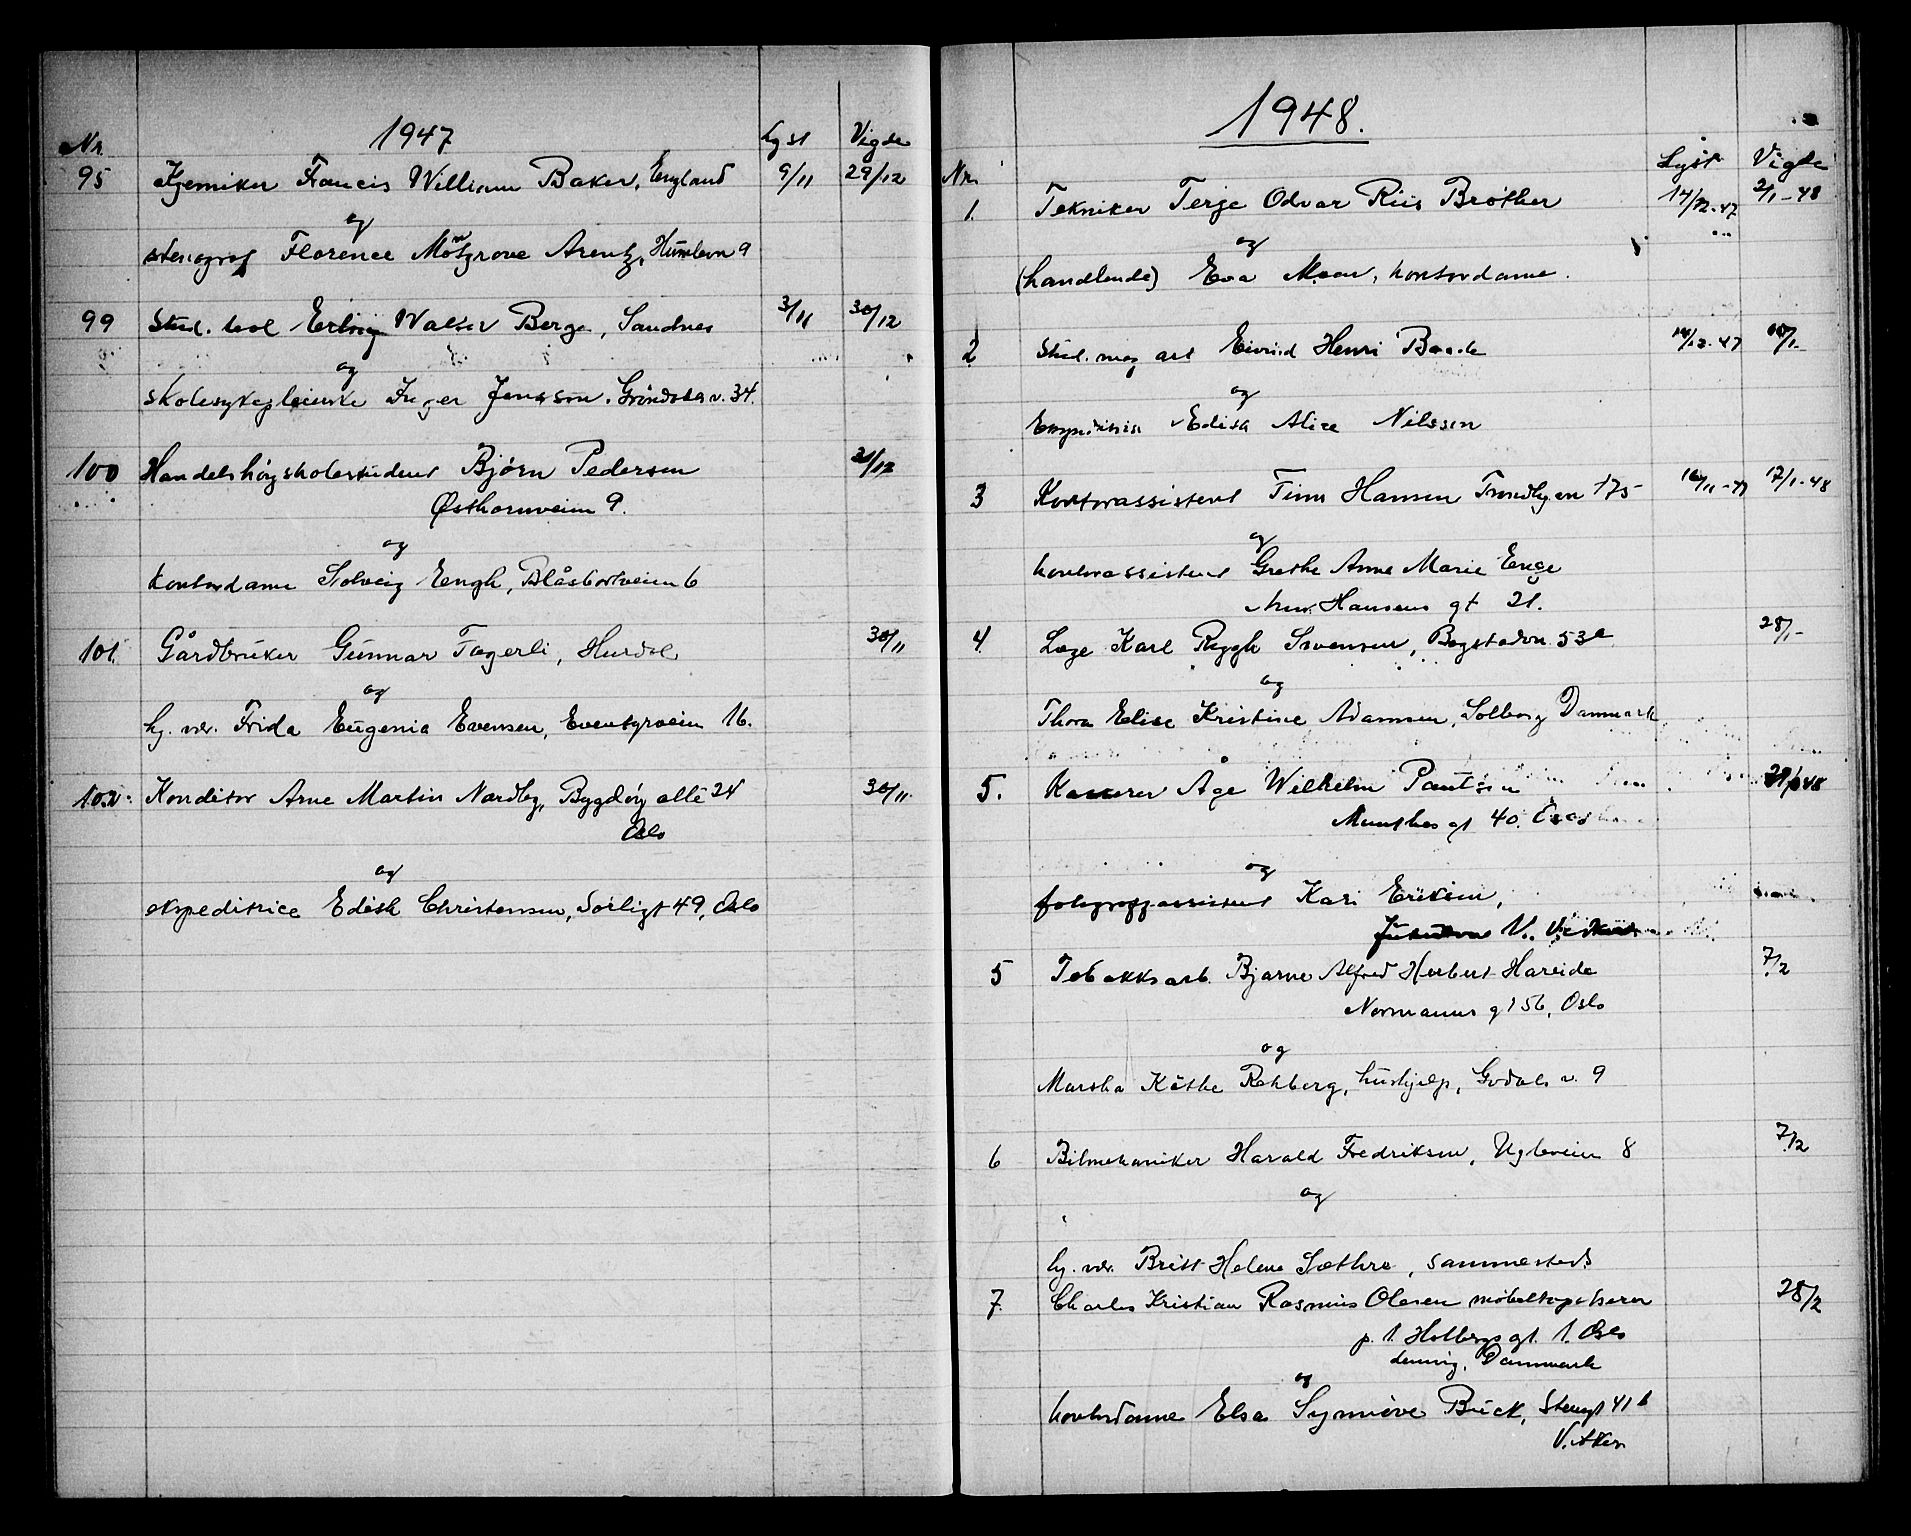 1947
Nr. Lyst Vigde
95 Kjemiker Francis William Baker, England 9/11 29/12
og
stenograf Florence Mosgrove Arentz, Humlevn 9
99 Stud. teol Erling Walter Berge, Sandnes 3/11 30/12
og
skolesykepleierske Inger Jenssen. v. 34.
100 Handelshøyskolestudent Bjørn Pedersen 31/12
Østhornveien 9.
og
kontordame Solveig Eengh, Blåsbortveien 6
101. Gårdbruker Gunnar Fagerli, Hurdal 30/11
og
hj. vær. Frida Eugenia Evensen, Eventyrveien 16.
102. Konditor Arne Martin Nordby, Bygdøy allé 24 30/11
Oslo
og
ekspeditrice Edith Christensen, Sorligt 49, Oslo
1948.
Nr. Lyst Vigde
1. Tekniker Terje Odvar Riis Brøther 14/12-47 2/1-48
og
(handlende) Eva Moen, kontordame.
2 Stud. mag art Eivind Henri Baade 14/12-47 10/1-
og
Edith Alice Nilssen
3 Kontorassistent Finn Hansen Trondhgvn 175 16/11-47 17/1-48
og
kontorassistent Grethe Anne Marie Enge
Hansens gt 21.
4 Læge Karl Rygh Svensen, Bogstadvn. 53 28/1-
og
Thora Elise Kristine Adamsen, Solborg Danmark
5. Åge Wilhelm 48
Munthes gt 40. Oslo
og
fotografassistent Kari Eriksen,
V.
5 Tobakksarb. Bjarne Alfred Herbert Hareide 7/2
Normanns gt 56, Oslo
og
Martha Käthe Rehberg, hushjelp, Godals v. 9
6 Bilmekaniker Harald Fredriksen, Ugleveien 8 7/2
og
hj. vær. Britt Helene Sæthre, sammesteds
7. Charles Kristian Rasmus Olesen møbeltapetserer 28/2
p. t. Holbergs gt. 1. Oslo
Danmark
og
kontordame Elsa Synnøve Buck, Stensgt 41 b
V. Aker